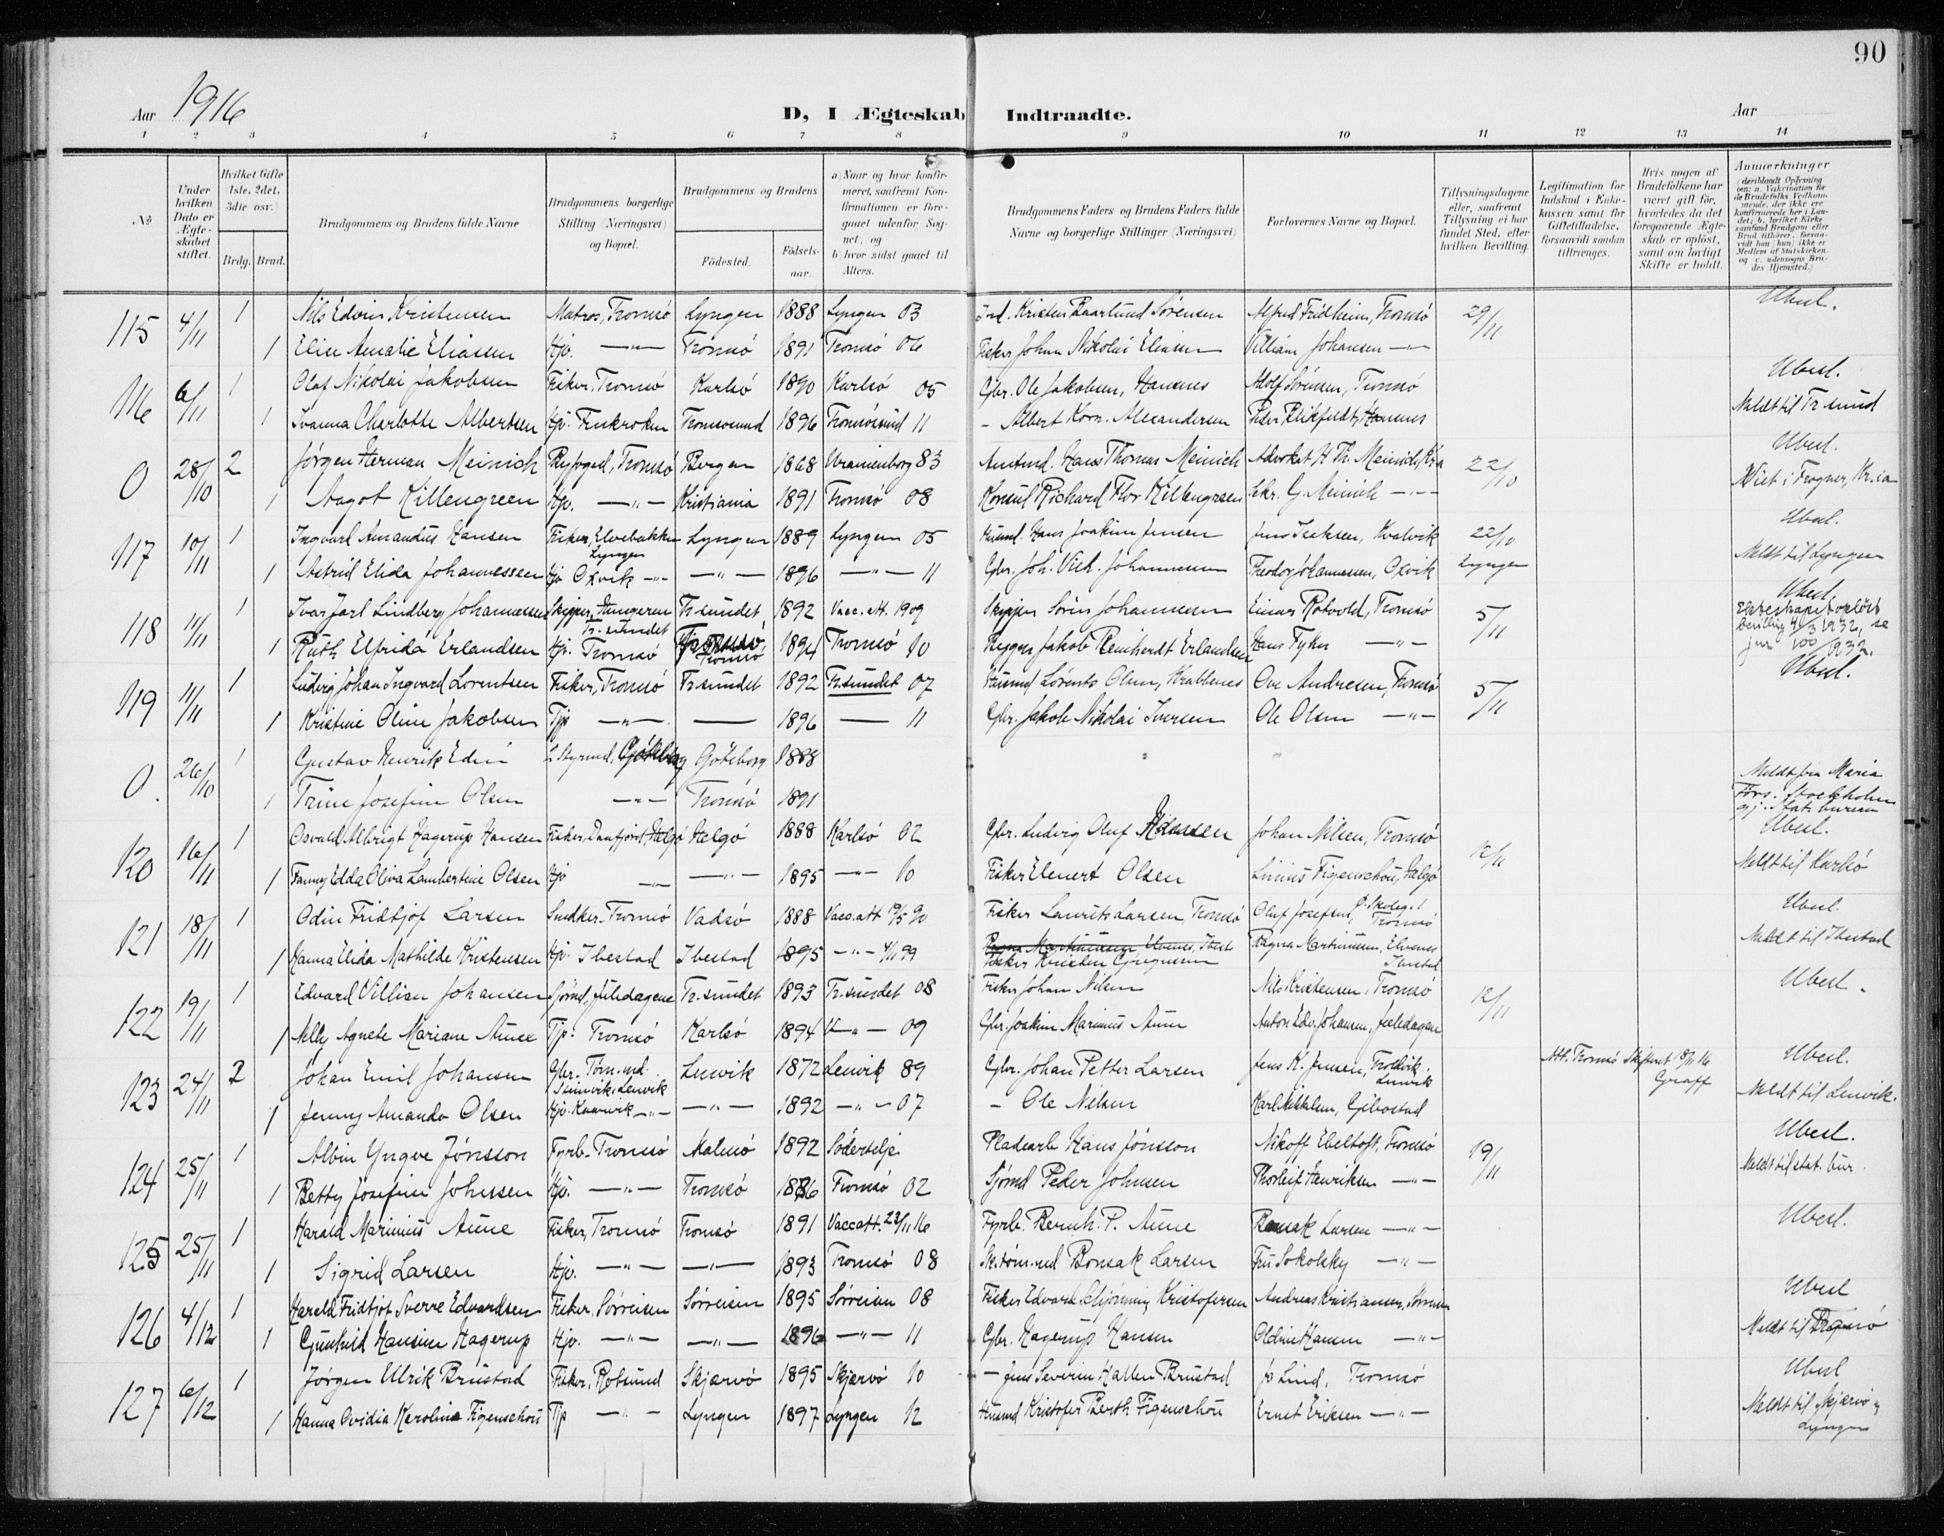 90
Aar 1916
D, I Ægteskab Indtraadte.
Aar
1 2 3 4 5 6 7 8 9 10 11 12 13 14
No
Under hvilken Dato er Ægteskabet stiftet.
Hvilket Gifte (1ste, 2det, 3die osv.)
Brdg. Brud.
Brudgommens og Brudens fulde Navne
Brudgommens borgerlige Stilling (Næringsvei) og Bopæl.
Brudgommens og Brudens
Födested. Födselsaar.
a) Naar og hvor konfirmeret, saafremt Konfirmationen er foregaaet udenfor Sognet, og
b) hvor sidst gaaet til Alters.
Brudgommens Faders og Brudens Faders fulde Navne og borgerlige Stillinger (Næringsvei)
Forlovernes Navne og Bopæl.
Tillysningsdagene eller, saafremt Tillysning ei har fundet Sted, efter hvilken Bevilling.
Legitimation for Indskud i Enkekassen samt for Giftetilladelse, forsaavidt saadan tiltrænges.
Hvis nogen af Brudefolkene har været gift før, hvorledes da det foregaaende Ægteskab er opløst, samt om lovligt Skifte er holdt.
Anmærkninger
115 4/11 1 Nils Edvin Kristensen Matros, Tromsø Lyngen 1888 Lyngen 03 Ind. Kristen Baarlund Sørensen Alfred Fridheim, Tromsø 29/11 Ubesl.
1 Elise Amalie Eliasen Hjv. —"— Tromsø 1891 Tromsø 06 Fisker Johan Nikolai Eliasen Villiam Johansen —"—
116 6/11 1 Olaf Nikolai Jakobsen Fisker, Tromsø Karlsø 1890 Karlsø 05 Gbr. Ole Jakobsen, Hansnes Adolf Sørensen, Tromsø Ubesl.
1 Ivanna Charlotte Albertsen Hjv. Finkroken Tromsøsund 1896 Tromsøsund 11 - Albert Korn. Alexandersen Peder Blikfeldt, Hansnes Meldt til Tr.sund
0 28/10 2 Jørgen Herman Meinich Byfoged, Tromsø Bergen 1868 Uranienborg 83 Amtmd. Hans Thomas Meinich Advokat H. Th. Meinich, Kr.a 22/10 Ubesl.
1 Aagot Killengreen Hjv. —"— Kristiania 1891 Tromsø 08 Konsul Richard Flor Killengreen Sekr. G. Meinich —"— Viet i Frogner, Kr.ia
117 10/11 1 Ingvard Amandus Hansen Fisker, Elvebakken Lyngen Lyngen 1889 Lyngen 05 Husmd. Hans Joakim Jensen Jens Isaksen, Kvalvik 22/10 Ubesl.
1 Astrid Elida Johannessen Hjv Oxvik —"— —"— 1896 —"— 11 Gbr. Joh. Vich. Johannesen Theodor Johannessen, Oxvik Lyngen Meldt til Lyngen
118 11/11 1 Ivar Jarl Lindberg Johannessen Skipper, Hungeren Tr.sundet Tr.sundet 1892 Vacc. att. 1909 Skipper Sören Johannesen Einar Rotvold, Tromsø 5/11 Ubesl.
1 Ruth Elfrida Erlandsen Hjv. Tromsø Tromsø 1894 Tromsø 10 Rygger Jakob Reinherdt Erlandsen Hans Fyhn —"— Ekteskapet opløst bevilling 4/3 1932, se jnr 100/1932.
119 11/11 1 Ludvig Johan Ingvard Lorentsen Fisker, Tromsø Tr.sundet 1892 Tr.sundet 07 Husmd Lorents Olsen, Krabbenes Ove Andresen, Tromsø 5/11 Ubesl.
1 Kristine Oline Jakobsen Tjp —"— —— 1896 —— 11 Gbr. Jakob Nikolai Iversen Ole Olsen —"—
0. 26/10 1 Gustav Henrik Edin Styrmd, Göteborg Göteborg 1888
1 Trine Josefine Olsen —"— Tromsø 1891 Meldt fra Maria Förs. Stockholm gj. Stat. bureau
120 16/11 1 Osvald Albrigt Hagerup Hansen Fisker, Danfjord, Helgø Helgø 1888 Karlsø 02 Gbr. Ludvig Oluf Hansen Johan Nilsen, Tromsø 12/11 Ubesl.
1 Fanny Edda Oliva Lambertine Olsen Hjv —"— —"— 1895 —"— 10 Fisker Elenert Olsen Linius Figenschou, Helgø Meldt til Karlsø
121 18/11 1 Odin Fridtjof Larsen Snedker, Tromsø Vadsø 1888 Vacc. att 19/5 90 Fisker Laurits Larsen, Tromsø Oluf Josefsen, Tromsø Ubesl.
1 Hanna Elida Mathilde Kristensen Hjv. Ibestad Ibestad 1895 —"— 4/11 99 Fisker Kristen Gregersen Ragna Martinussen, Elvenes Ibestad Meldt til Ibestad
122 19/11 1 Edvard Villian Johansen Sjømd, Julidagene Tr.sundet 1893 Tr.sundet 08 Fisker Johan Nilsen Nils Kristensen, Tromsø 12/11 Ubesl.
1 Nelly Agnete Mariane Aune Tjp. Tromsø Karlsø 1894 —"— 09 Gbr. Joakim Marinus Aune Anton Edv. Johansen, Julidagene
123 24/11 2 Johan Emil Johansen Gbr. Tøm.md. Lenvik Lenvik 1872 Lenvik 89 Gbr. Johan Petter Larsen Jens K. Jensen, Trollvik Lenvik Att. Tromsø Skifteret 18/11 16 Graff Ubesl.
1 Jenny Amanda Olsen Hjv. Kaarvik —"— —"— 1892 —"— 07 - Ole Nilsen Karl Mikkelsen, Gibostad Meldt til Lenvik.
124 25/11 1 Albin Yngve Jönsson Fyrb. Tromsø Malmö 1892 Södertelje Pladearb Hans Jönsson Nikoff Ebeltoft, Tromsø 19/11 Ubesl.
1 Betty Josefine Johnsen Hjv. —"— Tromsø 1886 Tromsø 02 Sjømd Peder Johnsen Thorleif Henriksen —"— Meldt til stat. bur.
125 25/11 1 Harald Marinius Aune Fisker, Tromsø Tromsø 1891 Vacc att. 22/11 16 Fyrb. Bernh. P. Aune Bonsak Larsen —"— Ubesl.
1 Sigrid Larsen Hjv. —"— —"— 1893 Tromsø 08 Sk.tøm.md Bonsak Larsen Fru Sokolsky —"—
126 4/12 1 Harald Fridtjof Sverre Edvardsen Fisker, Sørreisen Sørreisen 1895 Sørreisen 08 Fisker Edvard Schjönning Kristofersen Andreas Kristiansen, Sørreisen Ubesl
1 Gunhild Hansine Hagerup Hjv. —"— —"— 1896 —"— 11 Gbr. Hagerup Hansen Oldine Hansen —"— Meldt til Tranø
127 6/12 1 Jørgen Ulrik Brustad Fisker, Rotsund Skjærvø 1895 Skjærvø 10 - Jens Severin Hallen Brustad Jo Lind, Tromsø Ubesl
1 Hanna Ovidia Karolina Figenschou Tjp —"— Lyngen 1897 Lyngen 12 Husmd Kristofer Berth Figenschou Ernst Eriksen —"— Meldt til Skjærvø og Lyngen